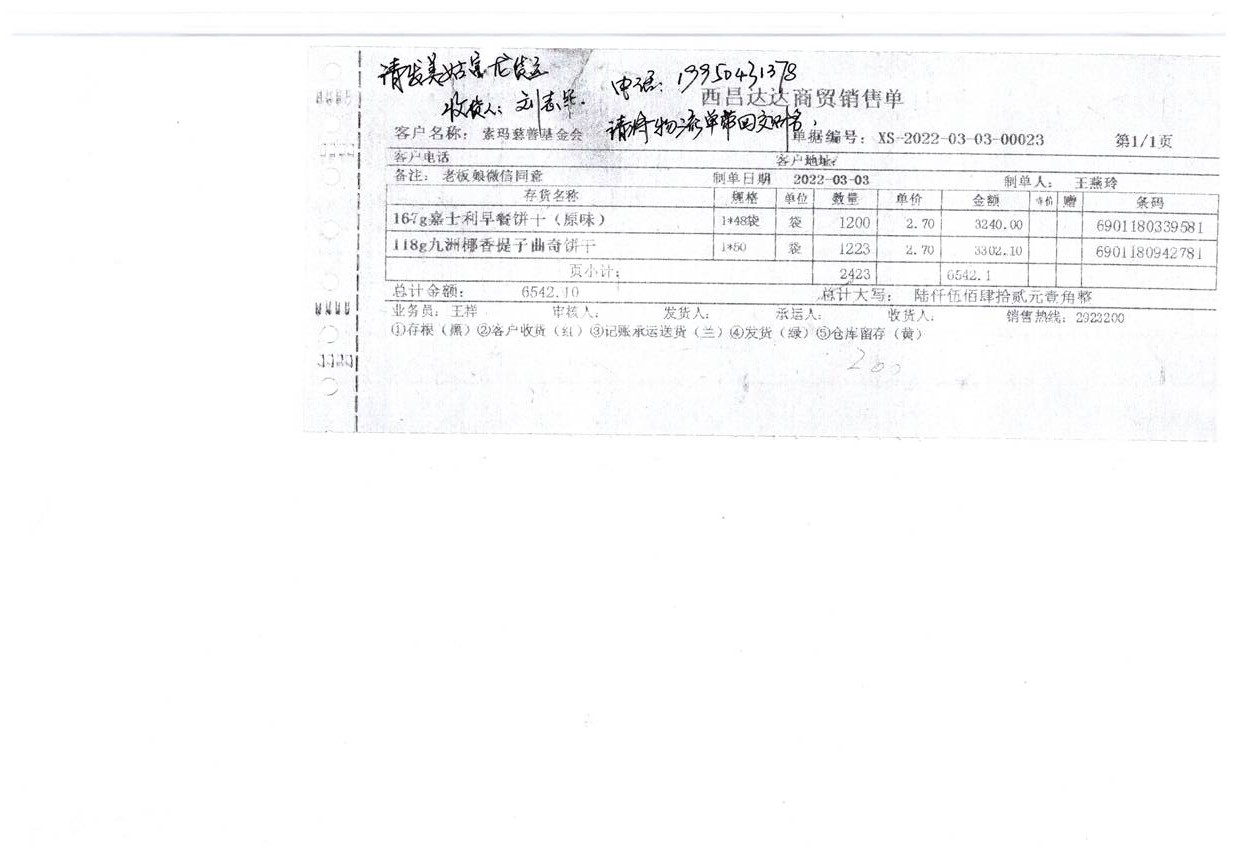 请发美姑富龙货运
收货人：刘志华.
电话：13350431378
请将物流单带回交财务，
西昌达达商贸销售单
客户名称： 索玛慈善基金会 单据编号： XS-2022-03-03-00023 第1/1页
客户电话 客户地址：
备注： 老板娘微信同意 制单日期 2022-03-03 制单人： 王燕玲
存货名称 规格 单位 数量 单价 金额 特价 赠 条码
167g嘉士利早餐饼干（原味） 1*48袋 袋 1200 2.70 3240.00 6901180339581
118g九洲椰香提子曲奇饼干 1*50 袋 1223 2.70 3302.10 6901180942781
页小计： 2423 6542.1
总计金额： 6542.10 总计大写： 陆仟伍佰肆拾贰元壹角整
业务员： 王祥 审核人： 发货人： 承运人： 收货人： 销售热线：2923200
①存根（黑）②客户收货（红）③记账承运送货（兰）④发货（绿）⑤仓库留存（黄）
200